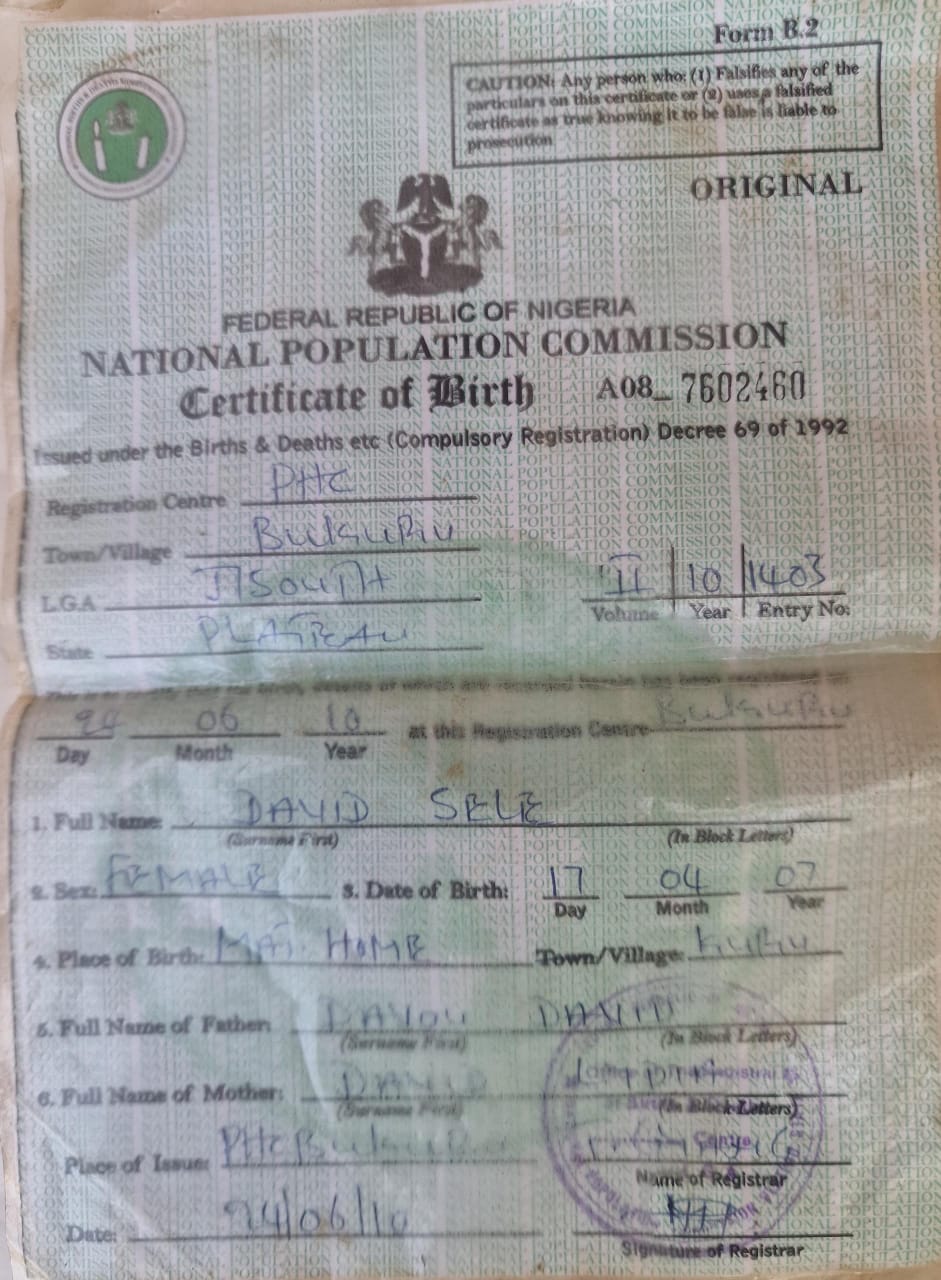 Form B.2
CAUTION: Any person who: (1) Falsifies any of the
particulars on this certificate or (2) uses a falsified
certificate as true knowing it to be false is liable to
prosecution
ORIGINAL
FEDERAL REPUBLIC OF NIGERIA
NATIONAL POPULATION COMMISSION
Certificate of Birth A08_ 7602460
Issued under the Births & Deaths etc (Compulsory Registration) Decree 69 of 1992
Registration Centre PHC
Town/Village BUKURU
L.G.A J/SOUTH
II 10 1403
Volume Year Entry No:
State PLATEAU
24 06 10 at this Registration Centre BUKURU
Day Month Year
1. Full Name: DAVID SELE
(Surname First) (In Block Letters)
2. Sex: FEMALE 3. Date of Birth: 17 04 07
Day Month Year
4. Place of Birth: MAT. HOME Town/Village: KURU
5. Full Name of Father: DAVOU DAVID
(Surname First) (In Block Letters)
6. Full Name of Mother: DAVID
(Surname First) (In Block Letters)
Place of Issue: PHC Bukuru
Name of Registrar
Date: 24/06/10
Signature of Registrar